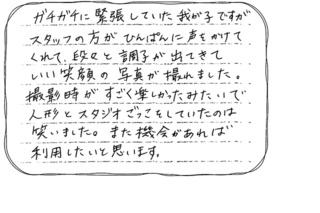 ガチガチに緊張していた我が子ですが
スタッフの方がひんぱんに声をかけて
くれて、段々と調子が出てきて
いい笑顔の写真が撮れました。
撮影時がすごく楽しかったみたいで
人形とスタジオごっこをしていたのは
笑いました。また機会があれば
利用したいと思います。